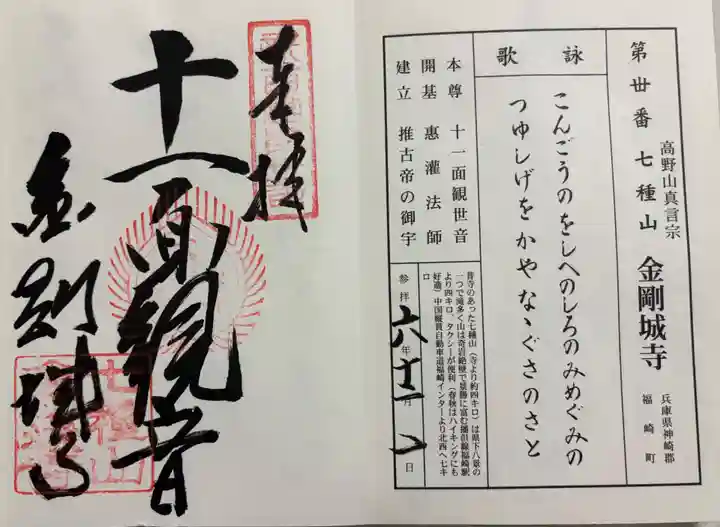 第丗番 七種山
高野山真言宗
金剛城寺
兵庫県神崎郡
福崎町
詠歌
こんごうのをしへのしろのみめぐみの
つゆしげをかやなゝぐさのさと
本尊 十一面観世音
開基 惠灌法師
建立 推古帝の御宇
昔寺のあった七種山（寺より約四キロ）は県下八景の
一つで滝多く山は奇岩絶壁で景勝に富む播但線福崎駅
より四キロ、タクシーが便利（春秋はハイキングにも
好適）中国縦貫自動車道福崎インターより北西へ七キ
ロ
参拝 六年十一月 日
奉拝
十一面観音
金剛城寺
七種山